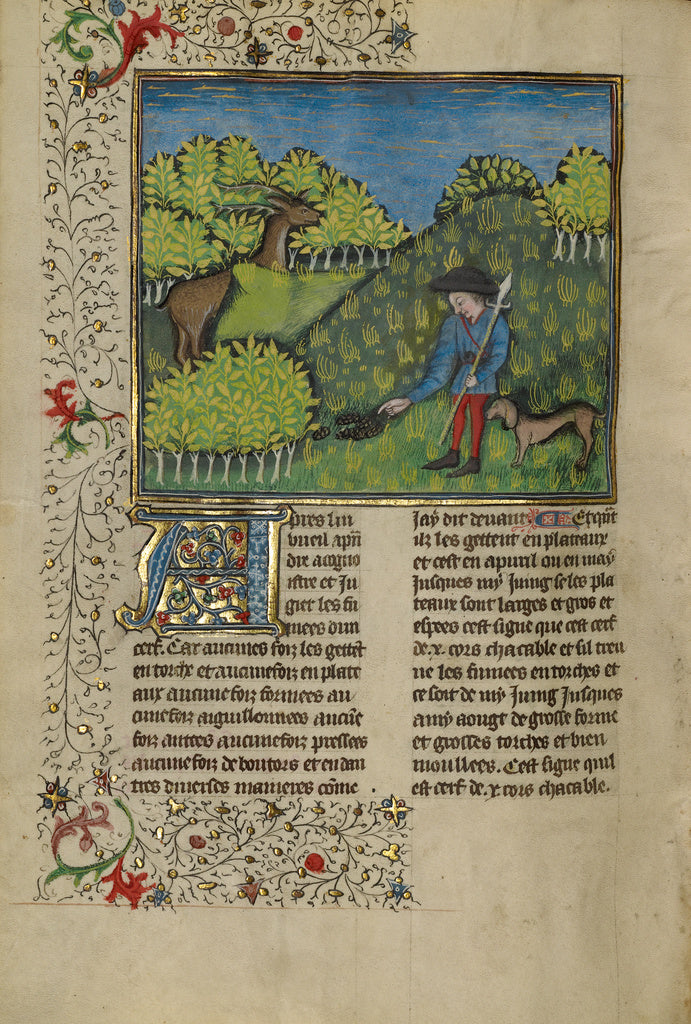 Apres luy
vueil apren
dre a cognoi
stre et Ju
gier les fu
mees dun
cerf. Car aucunes foiz les gettent
en torche et aucunefoiz en plate
aux aucunefoiz formees au
cunefoiz aiguillonnees aucune
foiz autres aucunefoiz pressees
aucunefoiz de boutors et en dau
tres diuerses manieres cõme
Jay dit deuant Et quãt
ilz les gettent en plateaux
et cest en apuril ou en may
Jusques my Juing se les pla
teaux sont larges et gros et
espees cest signe que cest cerf
de .x. cors chacable et sil treu
ue les fumees en torches et
ce soit de my Juing Jusques
a my aougt de grosse forme
et grosses torches et bien
moullees. Cest signe quil
est cerf de .x. cors chacable.